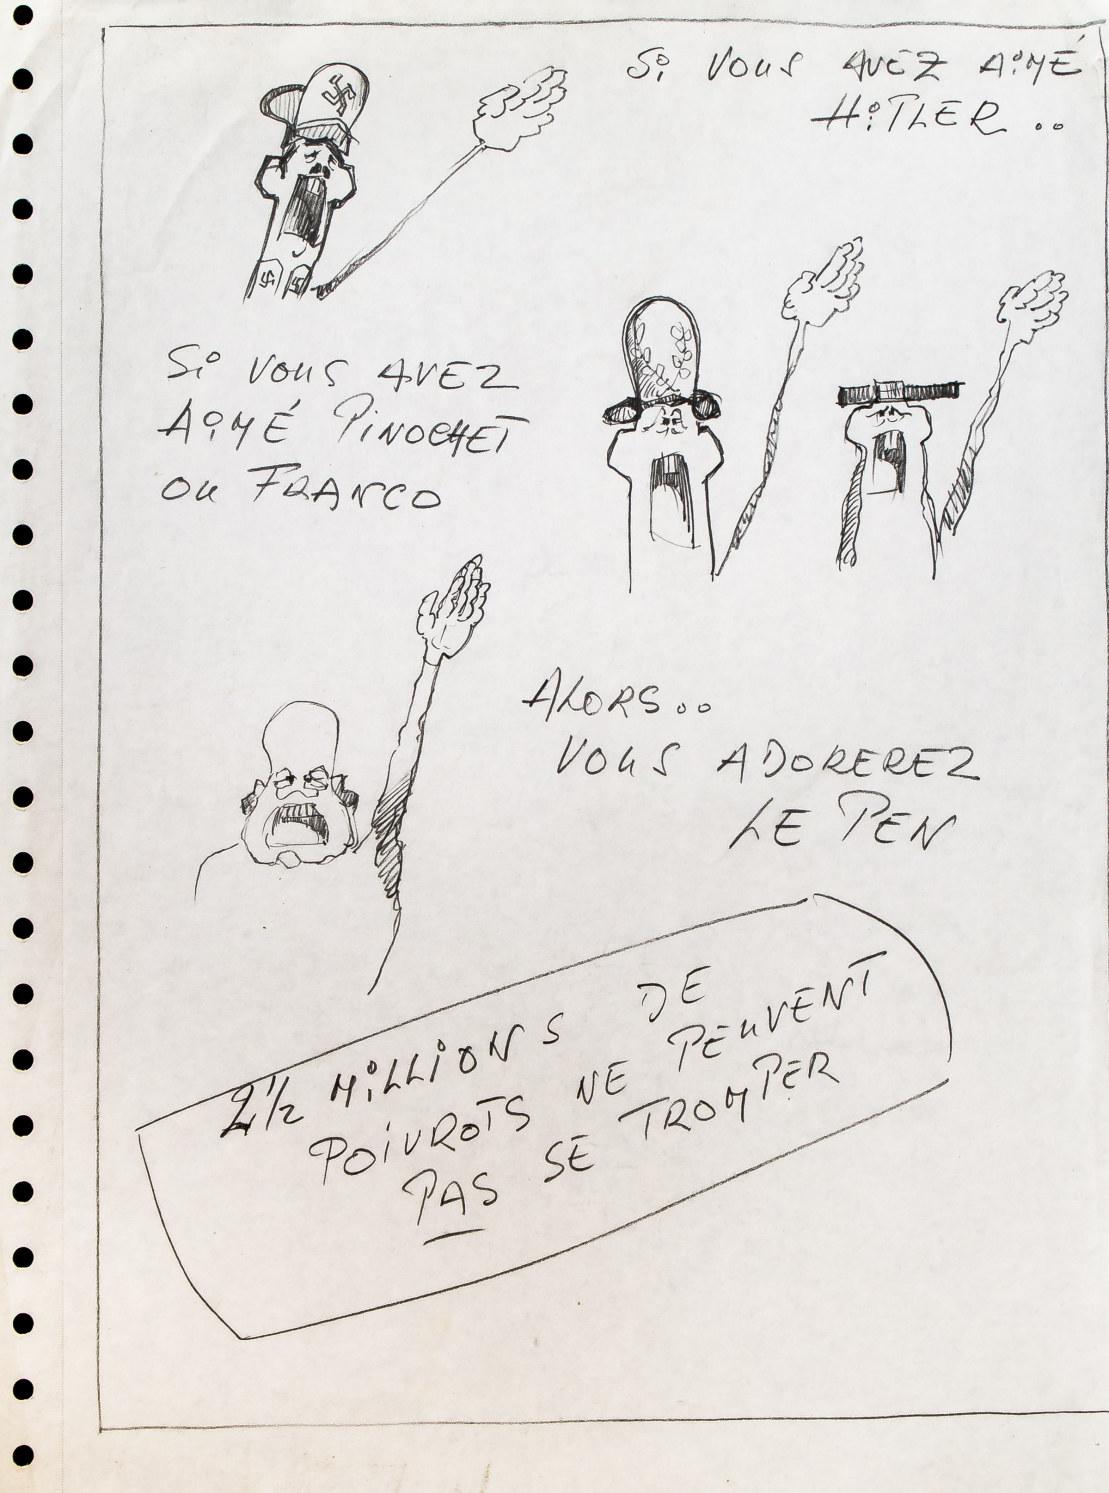 Si VOUS AVEZ AiMÉ
HiTLER ..
Si VOUS AVEZ
AiMÉ PINOCHET
OU FRANCO
ALORS..
VOUS ADOREREZ
LE PEN
2 1/2 MiLLiONS DE
POiVROTS NE PEUVENT
PAS SE TROMPER